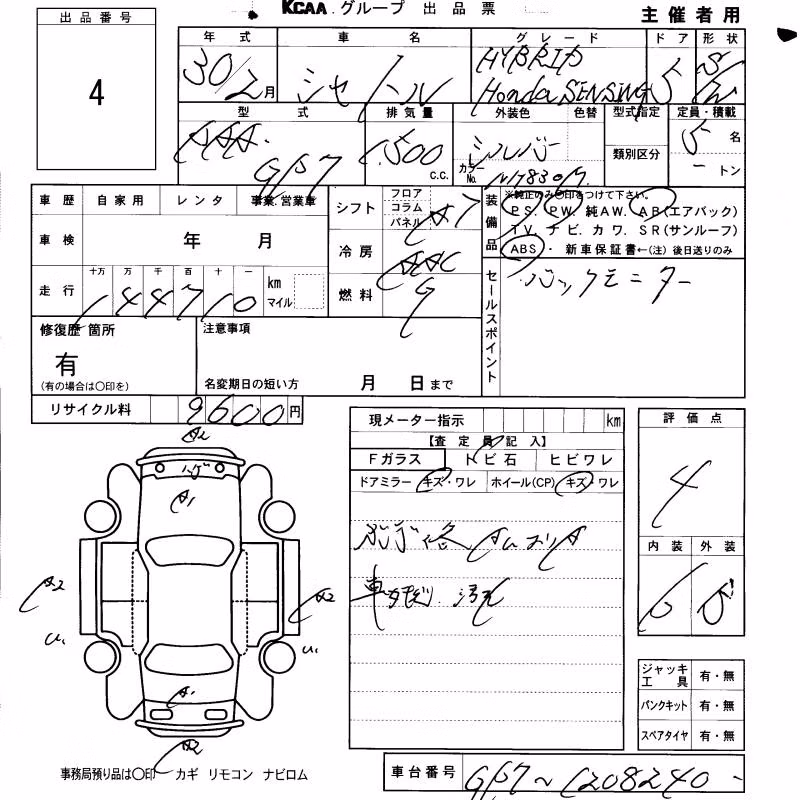 KCAA.グループ 出品票
主催者用
出品番号
4
年式 車名 グレード ドア 形状
30/2月 シャトル HYBRID Honda SENSING 5 SW
型式 排気量 外装色 色替 型式指定 定員・積載
AAA. GP7 1,500 c.c. シルバー 類別区分 5名
カラーNo. NH830M ートン
車歴 自家用 レンタ 事業.営業車
シフト フロア コラム パネル AT
装備品 ※純正のみ〇印をつけて下さい。
PS. PW. 純AW. AB(エアバック)
TV. ナビ. カワ. SR(サンルーフ)
ABS・ 新車保証書←(注)後日送りのみ
車検 年 月
冷房 AAC
走行 十万 万 千 百 十 一 km マイル
144710
燃料 G
セールスポイント
バックモニター
修復歴 箇所
有
(有の場合は〇印を)
注意事項
名変期日の短い方 月 日まで
リサイクル料 9600円
現メーター指示 km
【査定員記入】
Fガラス トビ石 ヒビワレ
ドアミラー キズ・ワレ ホイール(CP) キズ・ワレ
評価点
4
内装 外装
6 5
A2
A1
A2
A2
U1
U1
A1
A2
ジャッキ工具 有・無
パンクキット 有・無
スペアタイヤ 有・無
事務局預り品は〇印 カギ リモコン ナビロム
車台番号 GP7~1208240-